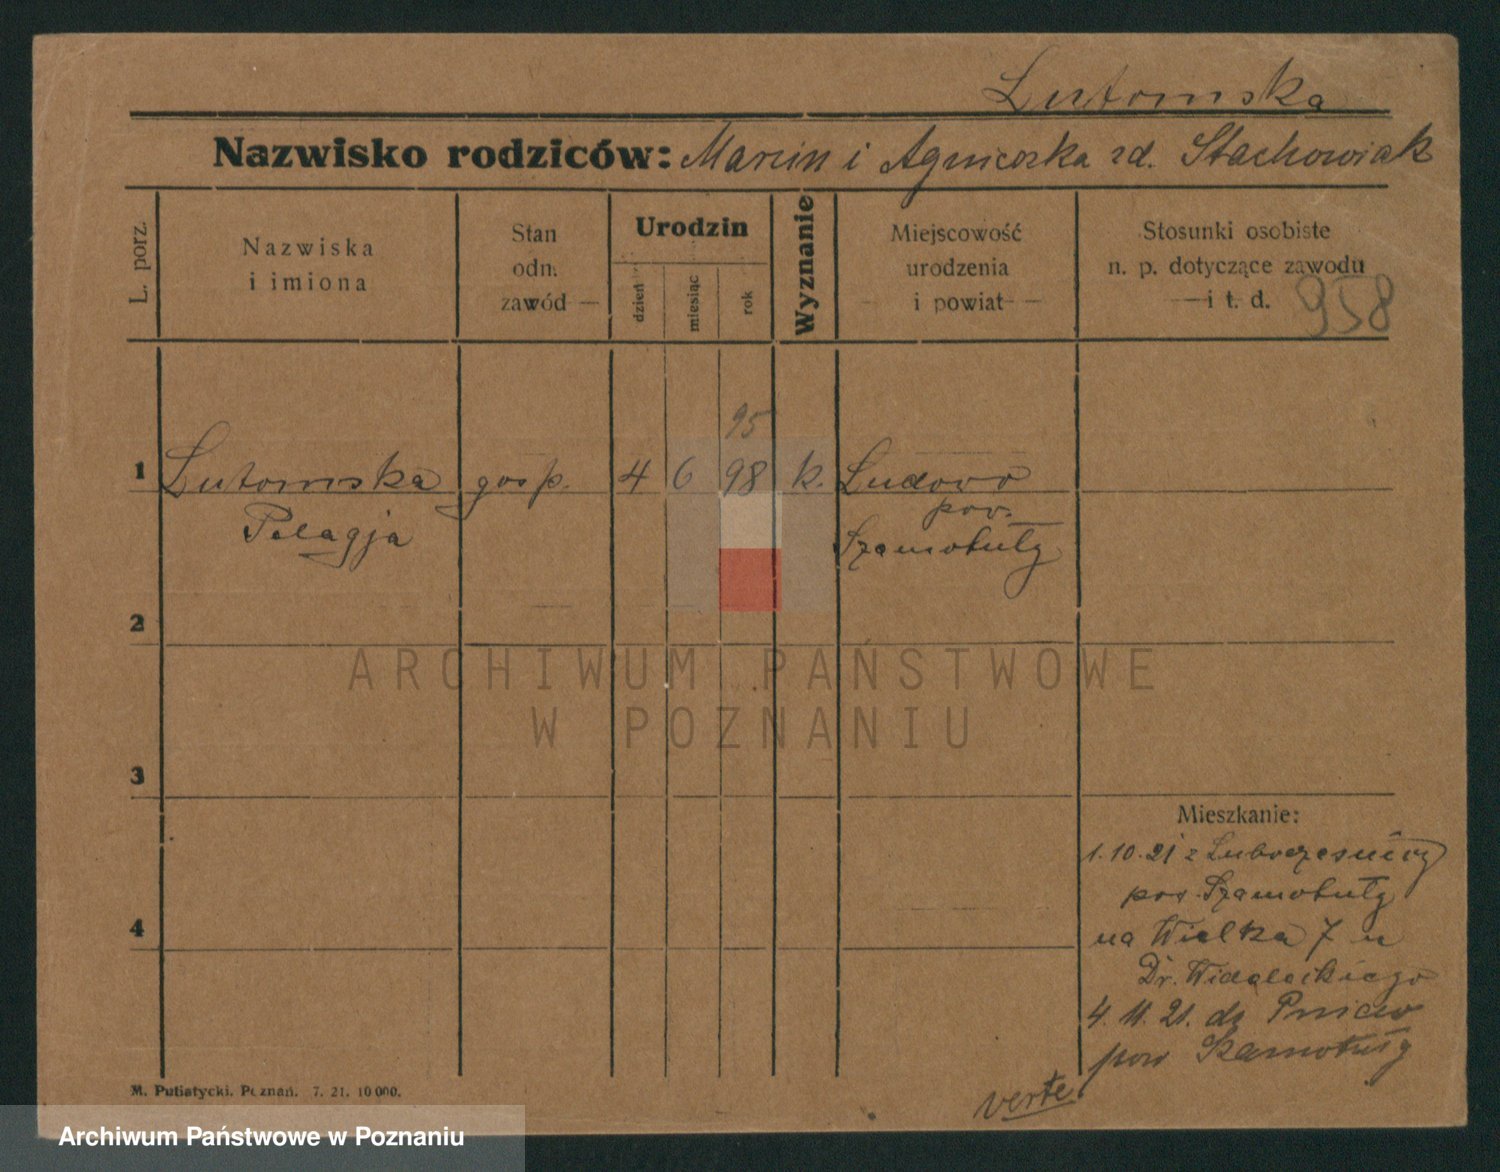 Lutomska
Nazwisko rodziców: Marcin i Agnieszka zd. Stachowiak
L. porz.
Nazwiska
i imiona
Stan
odn.
zawód
Urodzin
dzień
miesiąc
rok
Wyznanie
Miejscowość
urodzenia
i powiat
Stosunki osobiste
n. p. dotyczące zawodu
i t. d. 958
95
1 Lutomska gosp. 4 6 98 k. Ludowo
Pelagja pow.
Szamotuły
2
ARCHIWUM PAŃSTWOWE
W POZNANIU
3
Mieszkanie:
1.10.21 z
pow. Szamotuły
4
na Wielka 7 u
Dr.
4. 11. 21. do Pniew
pow Szamotuły
verte
M. Putiatycki. Poznań. 7. 21. 10 000.
Archiwum Państwowe w Poznaniu